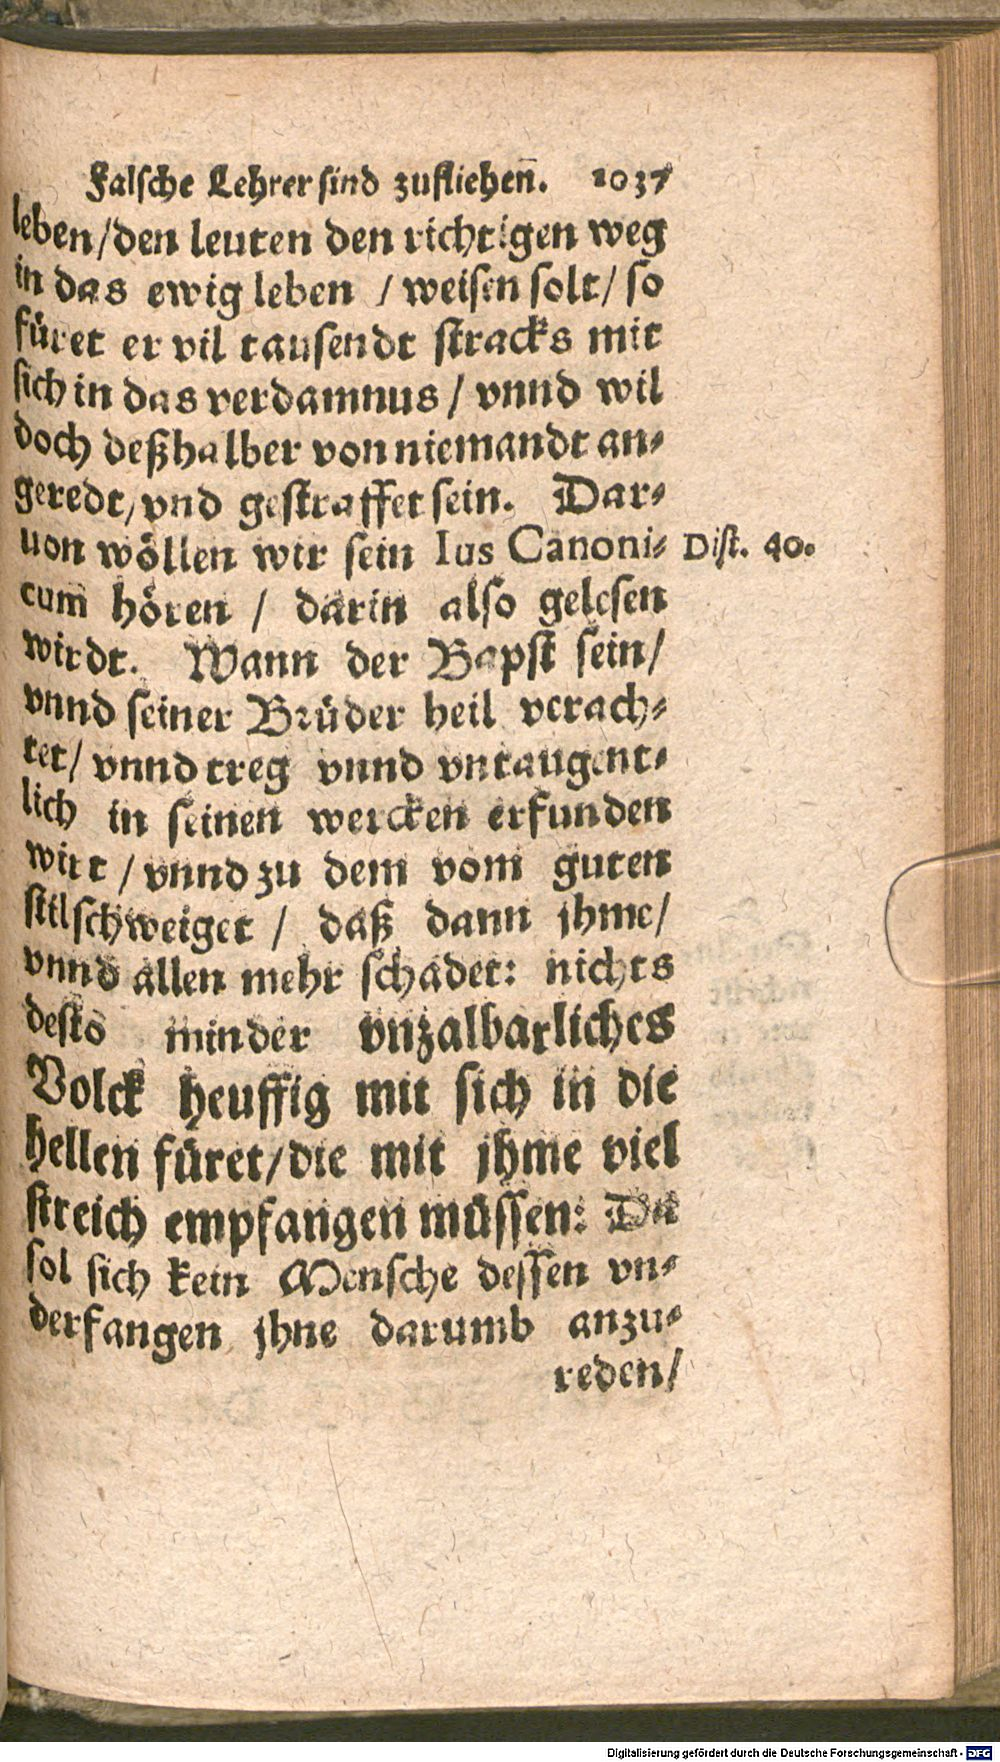 Falsche Lehrer sind zufliehen̄. 1037
leben/den leuten den richtigen weg
in das ewig leben / weisen solt/ so
füret er vil tausendt stracks mit
sich in das verdamnus / vnnd wil
doch deßhalber von niemandt an-
geredt/ vnd gestraffet sein. Dar-
uon wöllen wir sein Ius Canoni- Dist. 40.
cum hören / darin also gelesen
wirdt. Wann der Bapst sein/
vnnd seiner Brüder heil verach-
tet/ vnnd treg vnnd vntaugent-
lich in seinen wercken erfunden
wirt / vnnd zu dem vom guten
stilschweiget / daß dann jhme/
vnnd allen mehr schadet: nichts
desto minder vnzalbarliches
Volck heuffig mit sich in die
hellen füret/die mit jhme viel
streich empfangen müssen: Da
sol sich kein Mensche dessen vn-
derfangen jhne darumb anzu-
reden/
Digitalisierung gefördert durch die Deutsche Forschungsgemeinschaft - DFG